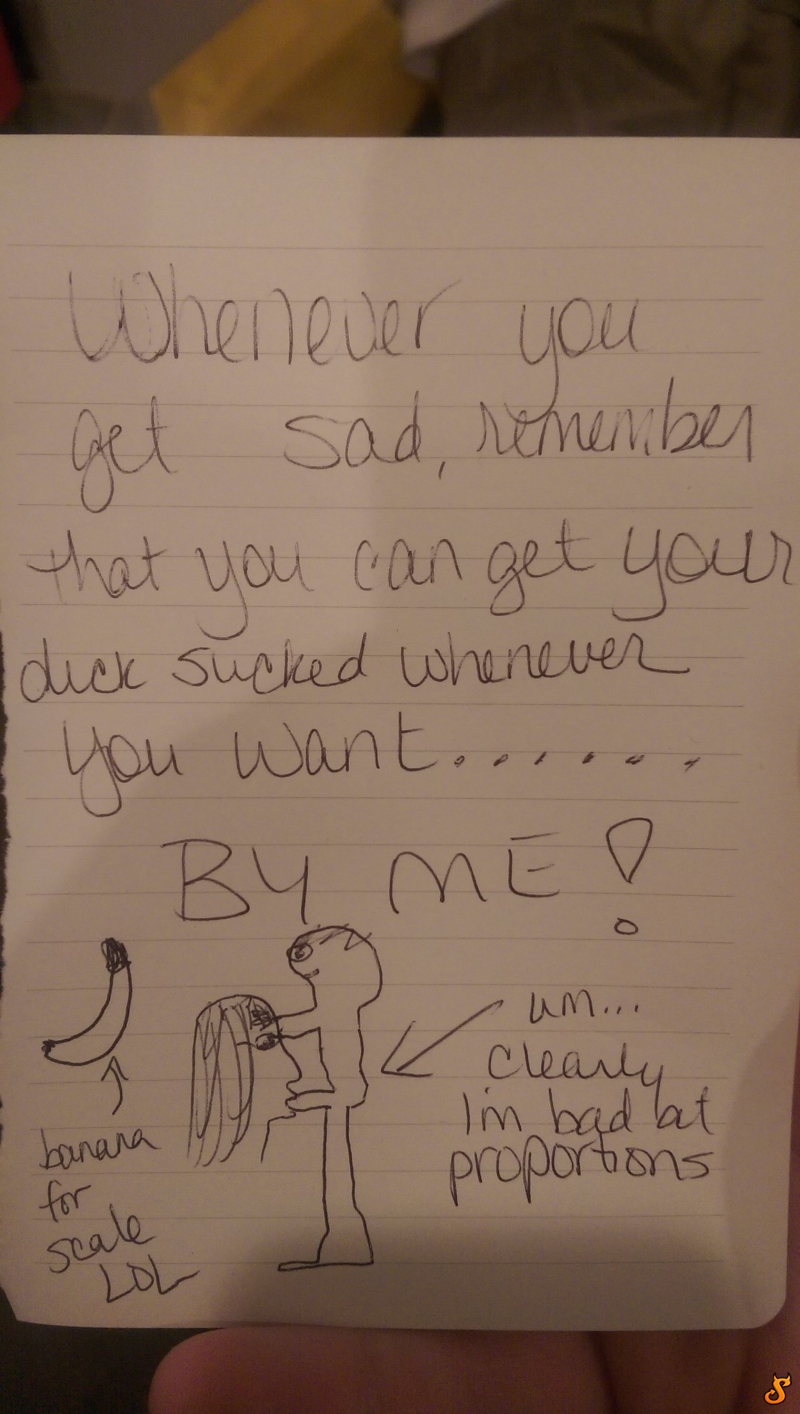 Whenever you
get sad, remember
that you can get your
dick sucked whenever
you want.......
BY ME!
um...
clearly
I'm bad at
proportions
banana
for
scale
LOL